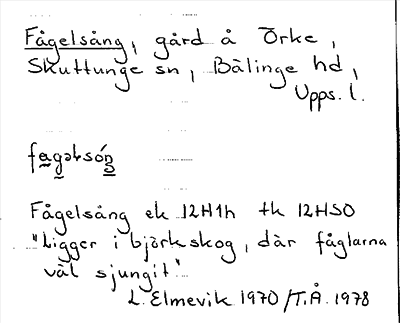 Fågelsång, gård å Örke,
Skuttunge sn, Bälinge hd,
Upps. l.
Fågelsång ek 12H1h tk 12HSO
"Ligger i björkskog, där fåglarna
väl sjungit"
L. Elmevik 1970/T.Å. 1978